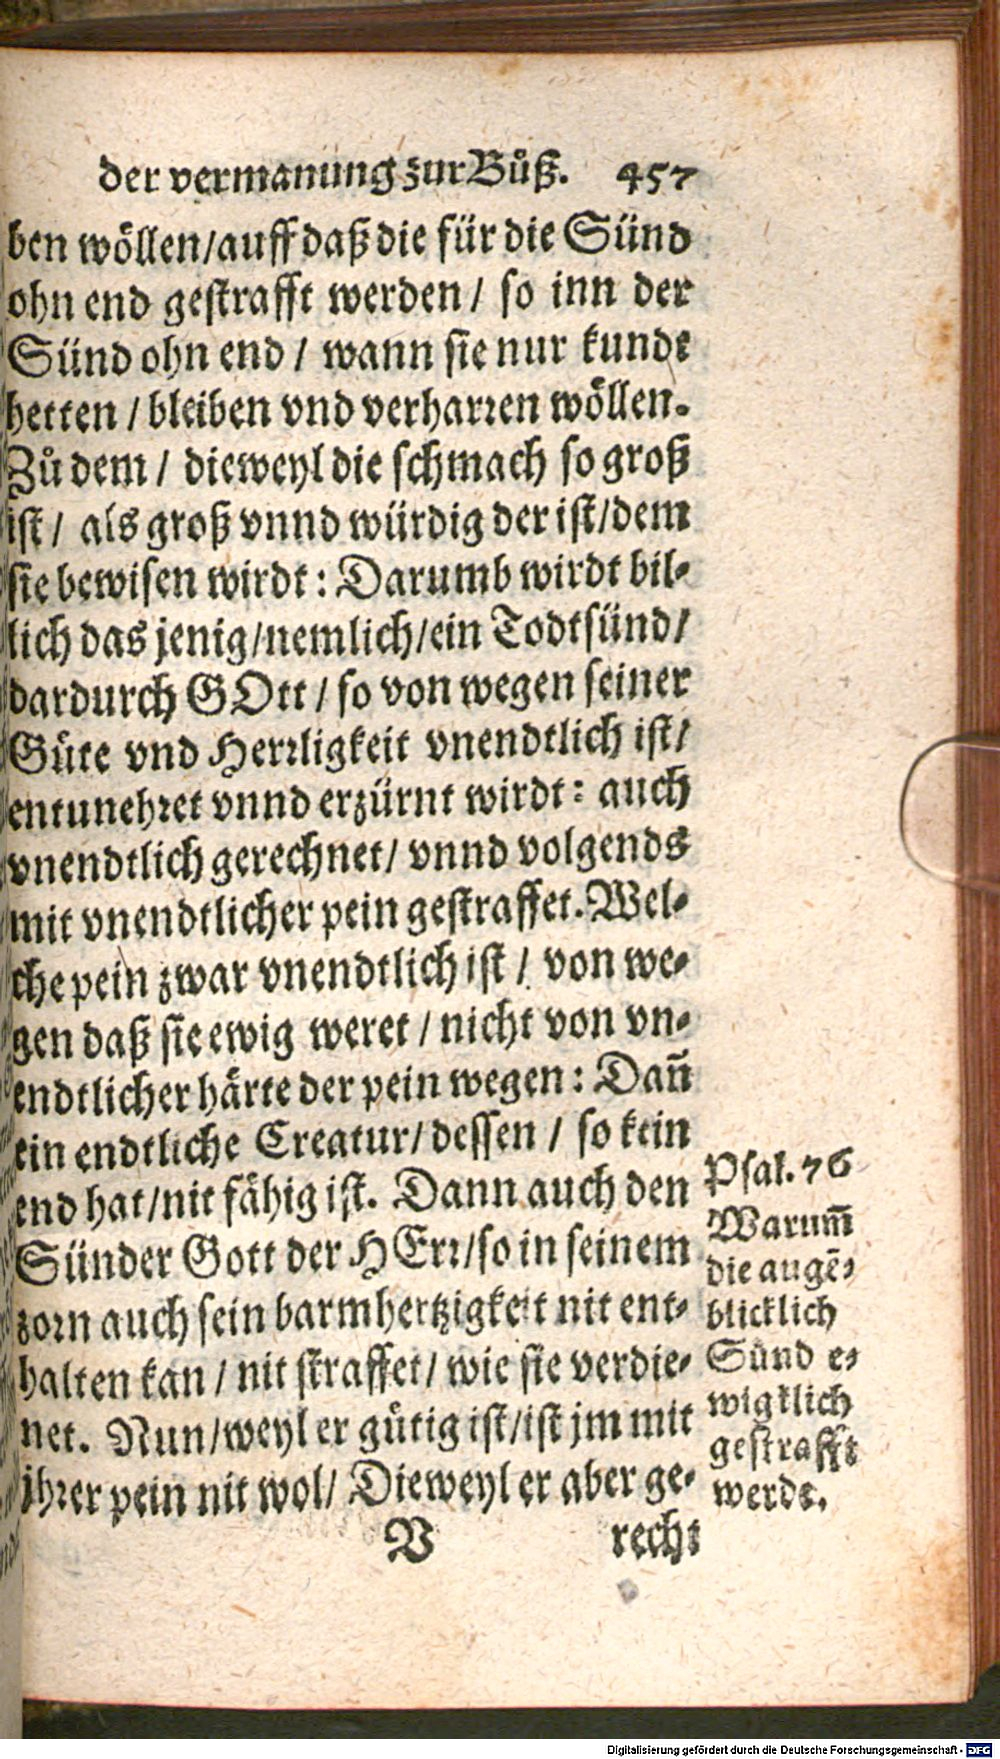 der vermanung zur Bůß. 457
ben wöllen/auff daß die für die Sünd
ohn end gestrafft werden/ so inn der
Sünd ohn end / wann sie nur kundt
hetten / bleiben vnd verharren wöllen.
Zů dem / dieweyl die schmach so groß
ist / als groß vnnd würdig der ist/dem
sie bewisen wirdt: Darumb wirdt bil-
lich das jenig/nemlich/ein Todtsünd/
dardurch GOtt / so von wegen seiner
Güte vnd Herrligkeit vnendtlich ist/
entunehret vnnd erzürnt wirdt: auch
vnendtlich gerechnet/ vnnd volgends
mit vnendtlicher pein gestraffet. Wel-
che pein zwar vnendtlich ist / von we-
gen daß sie ewig weret / nicht von vn-
endtlicher härte der pein wegen: Dañ
ein endtliche Creatur/ dessen / so kein
end hat/nit fähig ist. Dann auch den
Sünder Gott der HErr/so in seinem
zorn auch sein barmhertzigkeit nit ent-
halten kan / nit straffet/ wie sie verdie-
net. Nun/weyl er gütig ist/ist jm mit
ihrer pein nit wol/ Dieweyl er aber ge-
V recht
Psal. 76
Warum̃
die augẽ-
blicklich
Sünd e-
wigklich
gestrafft
werdt.
Digitalisierung gefördert durch die Deutsche Forschungsgemeinschaft - DFG